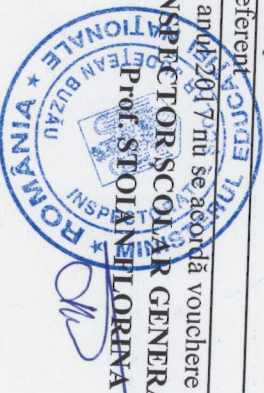 eferent
anul 2017 nu se acordă vouchere
NSPECTOR ȘCOLAR GENERA
Prof. STOIAN FLORINA
ROMÂNIA ★ MINISTERUL EDUCAȚIEI NAȚIONALE ★
INSPECTORATUL JUDEȚEAN BUZĂU